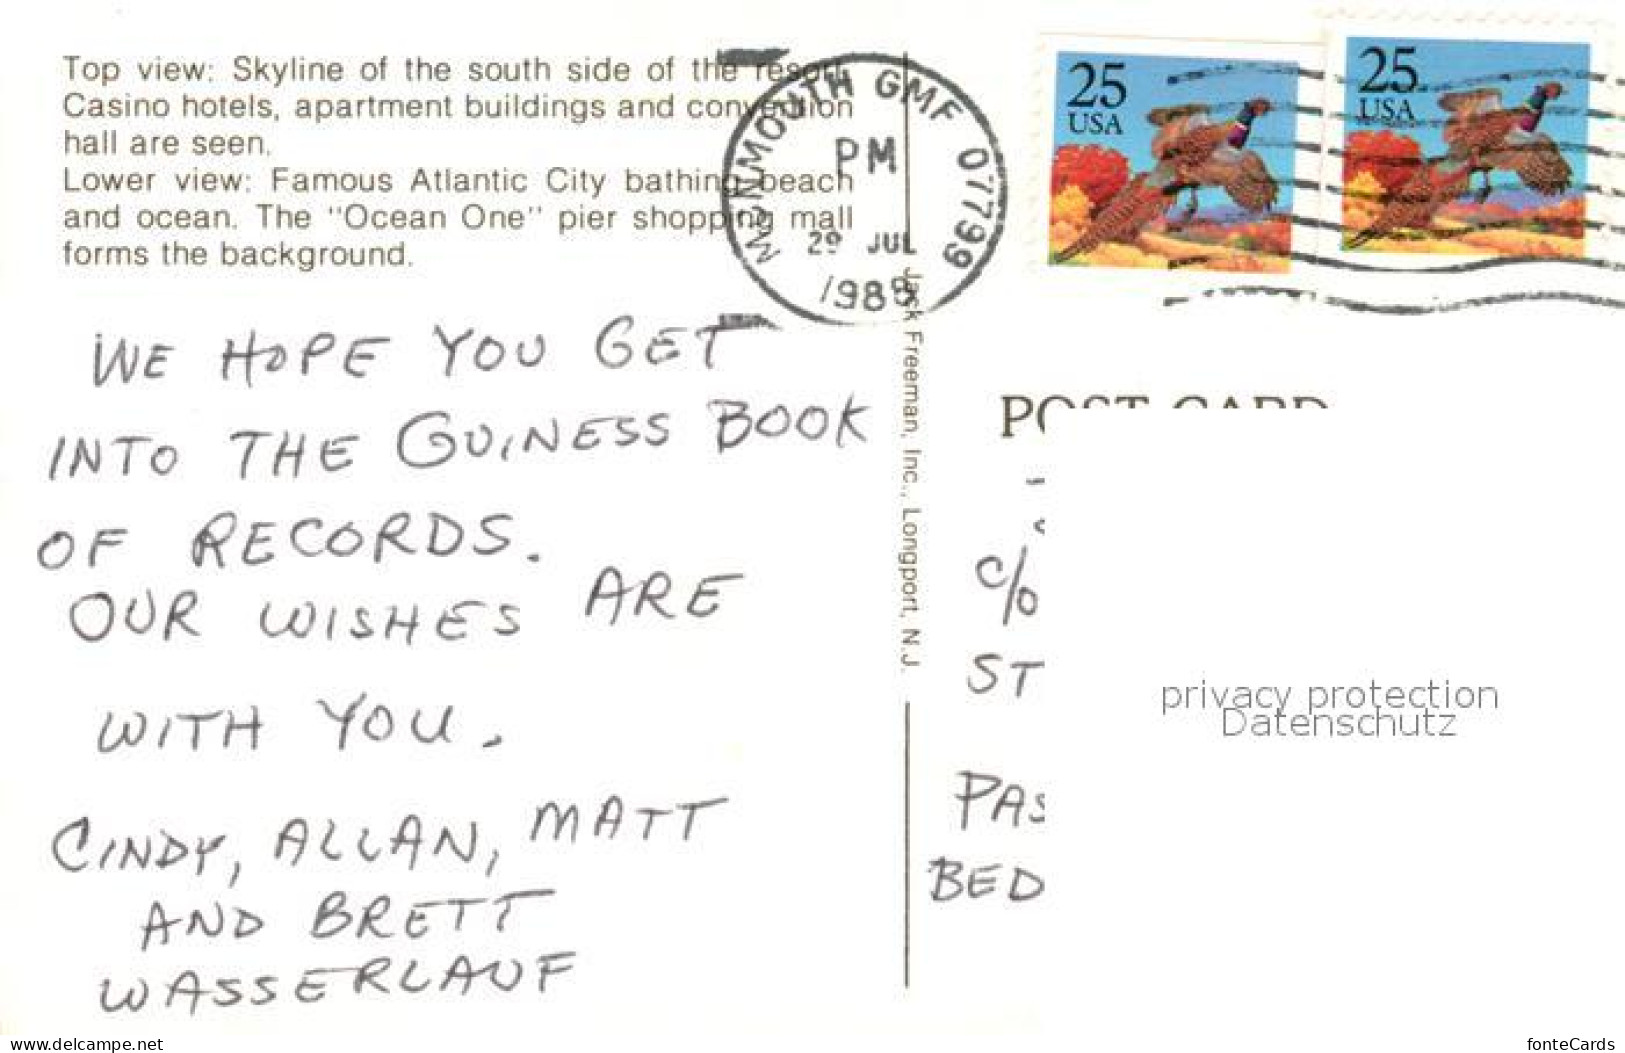 Top view: Skyline of the south side of the resort.
Casino hotels, apartment buildings and convention
hall are seen.
Lower view: Famous Atlantic City bathing beach
and ocean. The "Ocean One" pier shopping mall
forms the background.
MONMOUTH GMF 07799
PM
29 JUL
25
USA
25
USA
WE HOPE YOU GET
INTO THE GUINESS BOOK
OF RECORDS.
OUR WISHES ARE
WITH YOU.
CINDY, ALLAN, MATT
AND BRETT
WASSERLAUF
Jack Freeman, Inc., Longport, N.J.
POST CARD
C/O
ST
PAS
BED
privacy protection
Datenschutz
www.delcampe.net
fonteCards